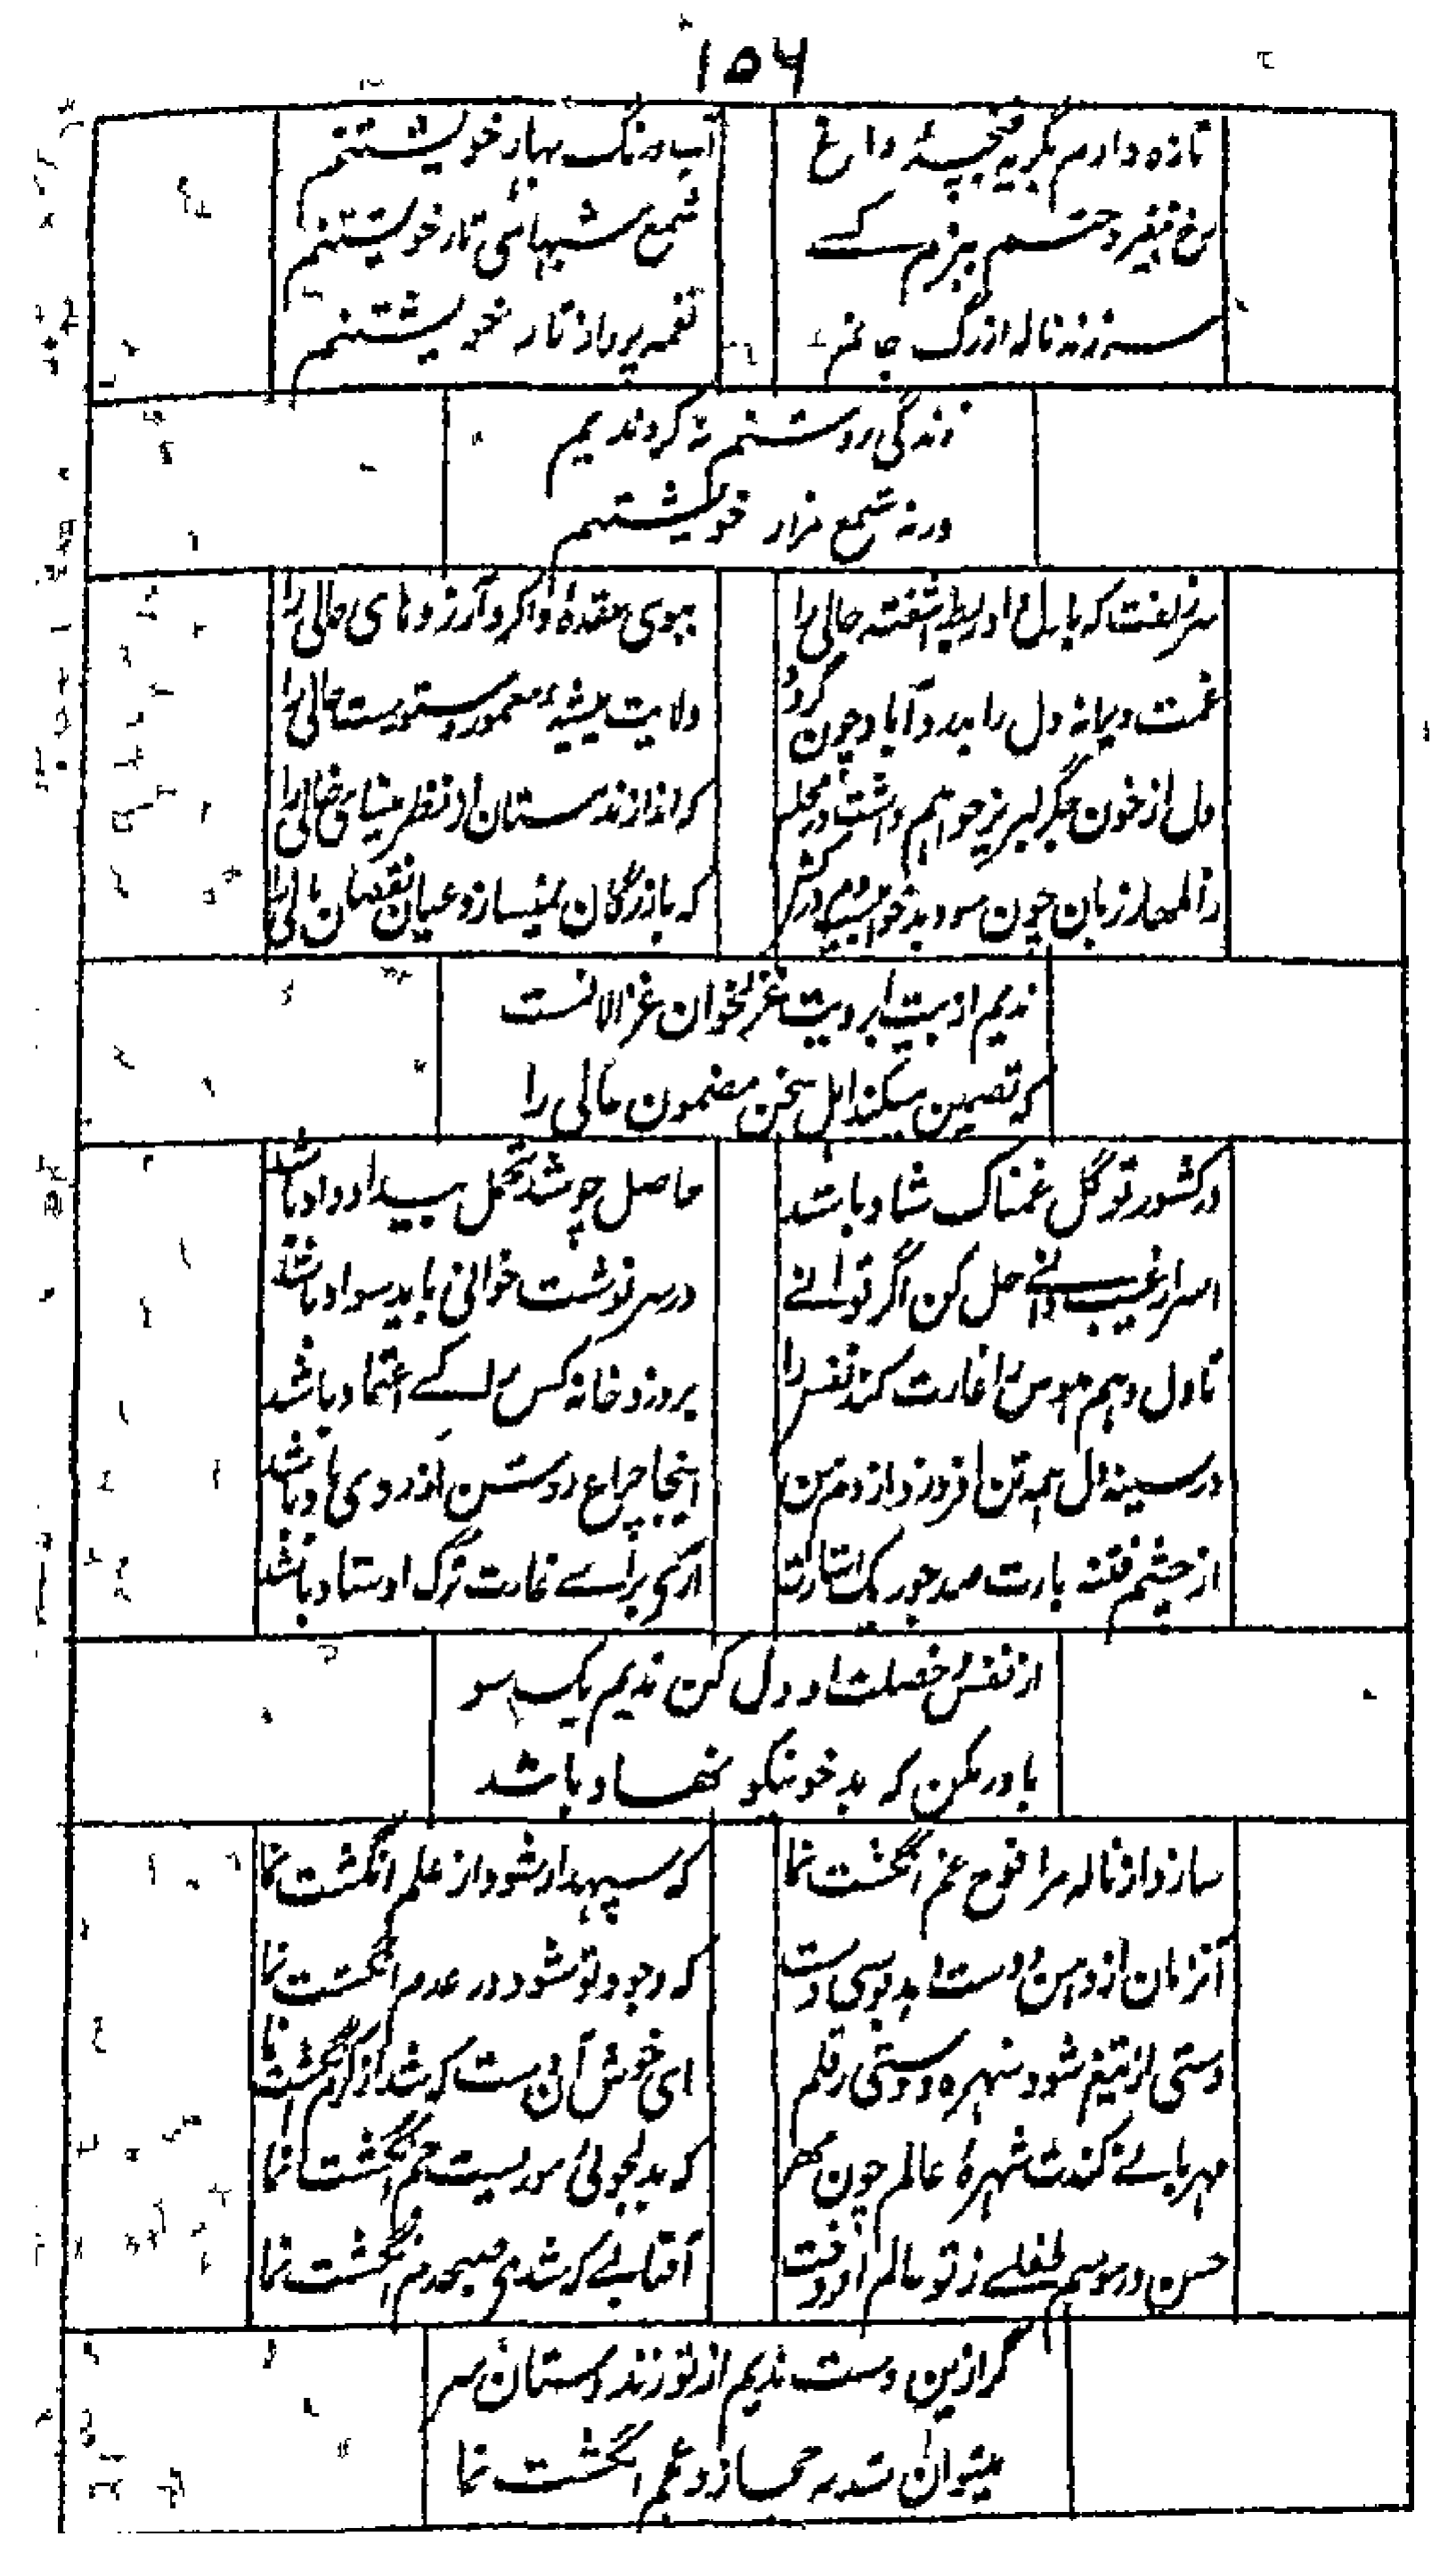 ۱۵۶
تازه دارم بگریه غنچهٔ داغ
آب و رنگ بهار خویشتنم
بزم کسے
شمع شبهائی تار خویشتنم
ناله از رگ جانم
نغمه پرداز تار خویشتنم
زندگی روشنم نه کرد ندیم
ورنه شمع مزار خویشتنم
سر زلفت که با دل داد ربط آشفته حالی را
ببوی عقدهٔ وا کرد آرزوهای محالی را
غمت ویرانه دل را بدرد آباد چون کرد
ولایت
دل از خون جگر لبریز خواهم داشت در
که اندازند مستان از نظر مینای خالی را
زبان چون سود بدخو
که بازرگان نمیسازد عیان نقصان مالی را
ندیم از بیت ابرویت غزلخوان غزالانست
که تضمین میکند اهل سخن مضمون عالی را
در کشور تو گل غمناک شاد باشد
حاصل چو شد تحمل بیداد داد باشد
اسرار غیب دانے حل کن اگر توانے
در سرنوشت خوانی باید سواد باشد
تا دل دهم هوس را غارت کند نفس را
بر دزد خانه کس را کے اعتماد باشد
در سینه دل همه تن افروزد از دم من
اینجا چراغ روشن از روی باد باشد
از چشم فتنه بارت صد جور یک اشارت
آرے براے غارت ترک اوستاد باشد
از نفس خصلت او دل کن ندیم یک سو
باور مکن که بدخو نیکو نهاد باشد
سازد از ناله مرا فوج غم انگشت نما
که سپهدار شود از علم انگشت نما
آنزمان از دهن دوست بوسی دست
که وجود تو شود در عدم انگشت نما
دستی از تیغ شود شهره و دستی ز قلم
ای خوش آن دست که شد از کرم انگشت نما
مهربانے کندت شهرهٔ عالم چون مهر
که بدلجوئی موریست جم انگشت نما
حسن در موسم طفلے ز تو عالم افروخت
آفتابے که شدی صبحدم انگشت نما
گر ازین دست ندیم از تو زند دستان سر
میتوان شد به حجاز و عجم انگشت نما